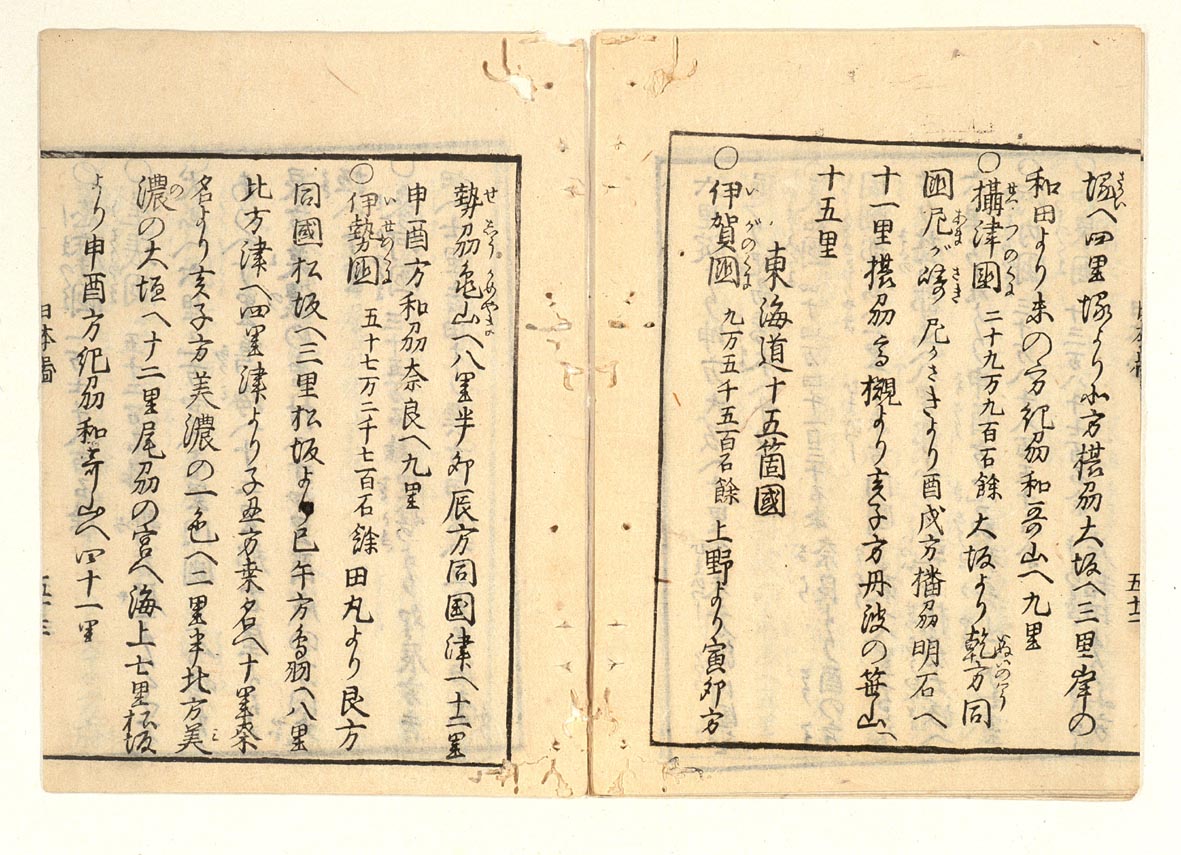 堺へ四里堺より北方摂刕大坂へ三里岸の
和田より未の方紀刕和哥山へ九里
〇攝津國 二十九万九百石餘 大坂より乾方同
國尼が崎 尼がさきより酉戌方播刕明石へ
十一里摂刕高槻より亥子方丹波の笹山へ
十五里
東海道十五箇國
〇伊賀國 九万五千五百石餘 上野より寅卯方
勢刕亀山へ八里半卯辰方同国津へ十二里
申酉方和刕奈良へ九里
〇伊勢國 五十七万二千七百石餘 田丸より艮方
同國松坂へ三里松坂より巳午方鳥羽へ八里
北方津へ四里津より子丑方桒名へ十里桒
名より亥子方美濃の一色へ二里半北方美
濃の大垣へ十二里尾刕の宮へ海上七里松坂
より申酉方紀刕和哥山へ四十一里